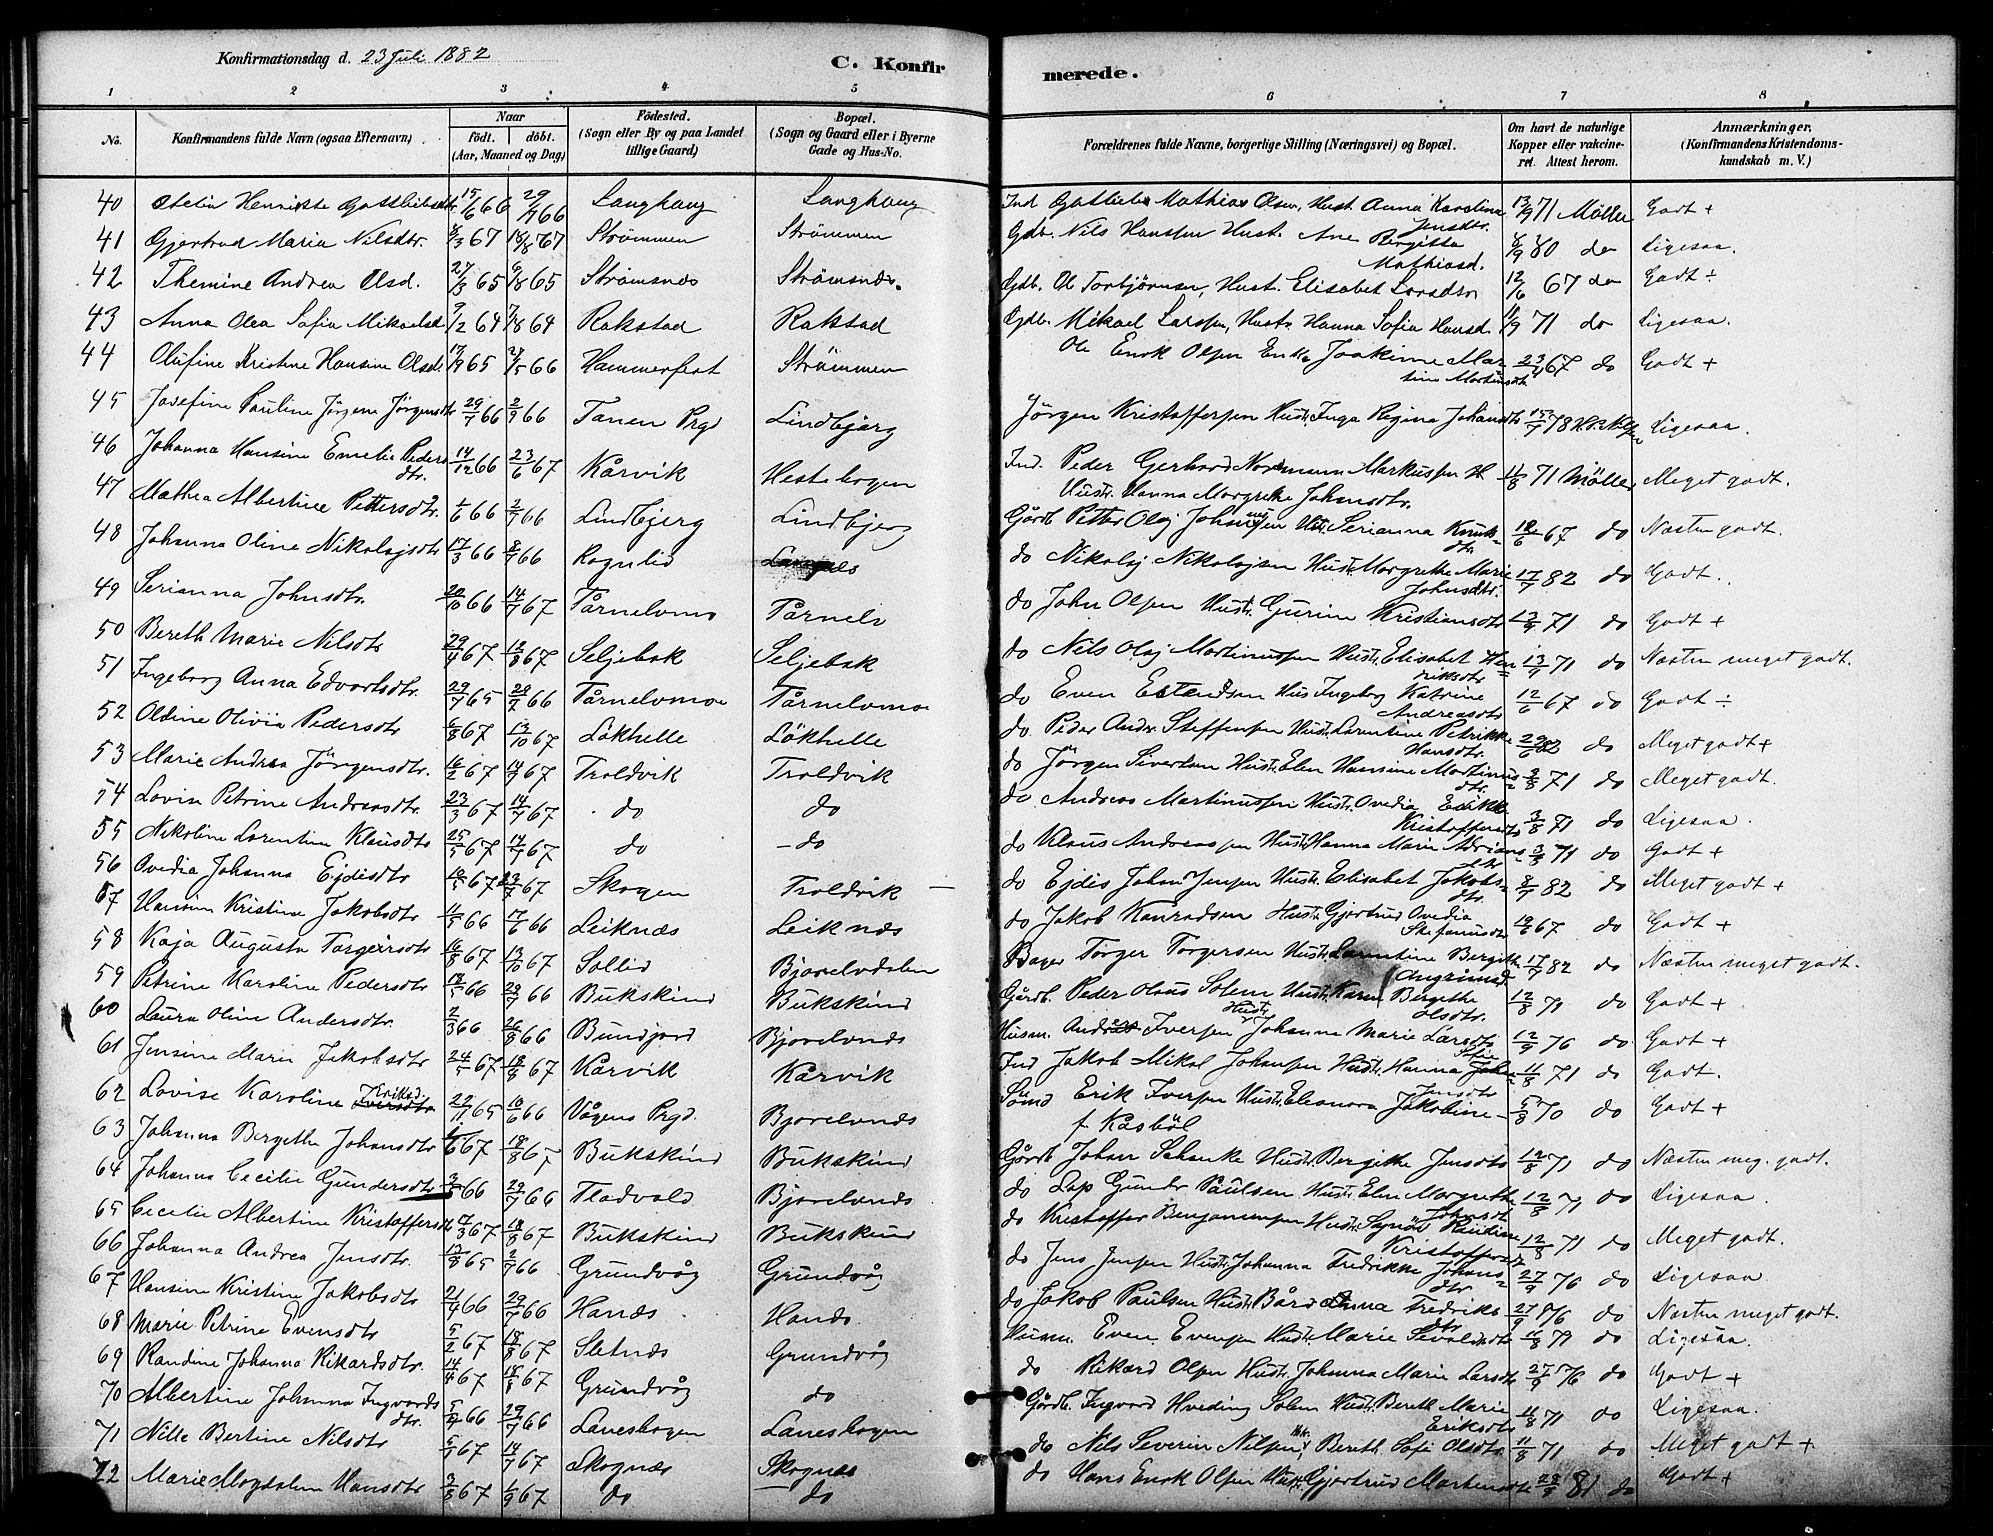 Konfirmationsdag d. 23 Juli 1882
C. Konfirmerede.
1 2 3 4 5 6 7 8
No. Konfirmandens fulde Navn (ogsaa Efternavn) Naar födt. döbt. (Aar, Maaned og Dag) Födested. (Sogn eller By og paa Landet tillige Gaard) Bopæl. (Sogn og Gaard eller i Byerne Gade og Hus-No. Forældrenes fulde Navne, borgerlige Stilling (Næringsvei) og Bopæl. Om havt de naturlige Kopper eller vaccineret. Attest herom. Anmærkninger. (Konfirmandens Kristendomskundskab m. V.)
40 Henrikke Gottliebsdtr. 15/6 66 29/7 66 Langhaug Langhaug Ind Gottlieb Mathias Olsen, Hust. Anna Karolina Jensdtr. 13/9 71 Möller Godt +
41 Gjertrud Maria Nilsdtr. 8/3 67 18/8 67 Strömmen Strömmen Gdb. Nils Hansen Hust. Ane Bergitta Mathiasd. 6/9 80 do Ligesaa.
42 Themine Andrea Olsd. 27/3 65 6/8 65 Strömsnes Strömsnes. Gdb. Ol Torbjörnsen, Hust. Elisabet Larsdtr 12/6 67 do Godt ÷
43 Anna Olea Sofia Mikaelsd. 9/2 64 7/8 64 Rakstad Rakstad Gdb. Mikael Larsen, Hustr. Hanna Sofia Hansd. 11/9 71 do Ligesaa.
44 Olufine Kristine Hansine Olsdtr 17/9 65 27/5 66 Hammerfest Strömmen Ole Enok Olsen Enke Joakime Martine Mortensdtr 23/4 67 do Godt +
45 Josefine Pauline Jörgine Jörgensdtr 29/7 66 2/9 66 Tanen Prgd Lindbjerg Jörgen Kristoffersen Hust. Inga Regina Johansdtr 15/7 78 Ligesaa.
46 Johanna Hansine Emelie Pedersdtr. 14/12 66 23/6 67 Kårvik Hestebogen Ind. Peder Gerhard Nordmann Markussen H Hustr. Hanna Margrethe Johansdtr. 11/8 71 Möller Meget godt.
47 Mathea Albertine Pettersdtr. 1/6 66 2/7 66 Lindbjerg Lindbjerg Gårdb. Petter Olaj Johansen Hust. Serianna Knutsdtr. 12/6 67 do Næsten godt.
48 Johanna Oline Nikolajsdtr 17/3 66 8/7 66 Rognlid do Nikolaj Nikolajsen Hust. Margrethe Marie Johnsdtr. 17/7 82 do Godt.
49 Serianna Johnsdtr. 20/10 66 14/7 67 Tårnelvmo Tårnelv do John Olsen Hustr. Gurine Kristiansdtr 13/9 71 do Godt +
50 Bereth Marie Nilsdtr 29/4 67 12/8 67 Seljebak Seljebak do Nils Olaj Martinussen Hustr. Elisabet Henriksdtr 13/9 71 do Næsten meget godt.
51 Ingeborg Anna Edvartsdtr. 29/7 65 Tårnelvmoe Tårnelvmoe do Even Estensen Hus Ingeborg Katrine Andreasdtr 12/6 67 do Godt ÷
52 Oldine Olivia Pedersdtr 6/8 67 13/10 67 Lökhelle Lökhelle do Peder Andr. Steffensen Hustr. Larentine Petrikke Hansdtr. 29/6 82 do Meget godt +
53 Marie Andrea Jörgensdtr. 16/2 67 14/7 67 Troldvik Troldvik do Jörgen Sivertsen Hustr. Elen Hansine Martinusdtr. 3/8 71 do Meget godt.
54 Lovise Petrine Andreasdtr 23/3 67 14/7 67 do do do Andreas Martinussen Hustr. Ovedia Erikke Kristoffersdtr 3/8 71 do Ligesaa.
55 Nikoline Larentine Klausdtr 25/5 67 14/7 67 do do do Klaus Andreassen Hustr. Hanna Marie Abriansdtr 3/8 71 do Godt +
56 Ovedia Johanna Ejdisdtr 10/5 67 67 Skogen Troldvik do Ejdis Johan Jensen Hustr. Elisabet Jakobsdtr. 8/7 82 do Meget godt +
57 Hansine Kristine Jakobsdtr 66 17/6 66 Leiknæs Leiknæs do Jakob Konradsen Hustr. Gjertrud Ovedia Stefanusdtr 12/6 67 do Godt +
58 Kaja Augusta Torgeirsdtr 16/8 67 13/10 67 Sollid Bjorelvdalen Bager Torger Torgersen Hustr. Larentine Bergithe 17/7 82 do Næsten meget godt.
59 Petrine Karoline Pedersdtr 66 29/7 66 Bukskind Bukskind Gårdb. Peder Olaus Solem Hustr. Karen Bergethe Olsdtr. 12/8 71 do Godt +
60 Laura Oline Andersdtr. 2/3 66 26/8 66 Bundjord Bjorelvnds Husm. Anders Iversen Hustr Johanna Marie Larsdtr 12/9 76 do Godt +
61 Jensine Marie Jakobsdtr 24/5 67 18/8 67 Kårvik Kårvik Ind Jakob Mikal Johansen Hustr. Hanna Sofie 11/8 71 do Godt.
62 Lovise Karoline Eriksd. 22/11 65 10/6 66 Vågens Prgd. Bjorelvnds Erik Iversen Hustr. Eleonora Jakobine Jensdtr f. Kasböl 5/8 70 do Godt +
63 Johanna Bergethe Johansdtr 67 18/8 67 Bukskind Bukskind Gårdb Johan Schanke Hustr. Bergithe Jensdtr 12/8 71 do Næsten meg. godt.
64 Johanna Cecilie Gundersdtr 66 29/7 66 Fladvald Bjorelvnds do Lap Gunder Paulsen Hustr. Elen Margrethe Johnsdtr 12/8 71 do Ligesaa.
65 Cecilie Albertine Kristoffersdtr 17/3 67 18/8 67 Bukskind Bukskind do Kristoffer Benjaminsen Hustr. Synöv Paulina Kristoffersdtr 12/8 71 do Meget godt.
66 Johanna Andrea Jensdtr. 13/8 65 2/7 66 Grundvåg Grundvåg do Jens Jensen Hustr. Johanna Fredrikke Johansdtr. 27/9 76 do Ligesaa
67 Hansine Kristine Jakobsdtr 21/4 66 29/7 66 Hanæs Hands. do Jakob Paulsen Hustr. Bård Anna Fredriksdtr 27/9 76 do Næsten meget godt.
68 Marie Petrine Evensdtr 5/2 67 18/8 67 Sletnæs Grundvåg Husm. Even Evensen Hustr. Marie Sivaldsdtr 11/8 71 do Ligesaa.
69 Randine Johanna Rikardsdtr. 14/4 67 18/8 67 Grundvåg do do Rikard Olsen Hustr. Johanna Marie Larsdtr 27/9 76 do Godt +
70 Albertine Johanna Ingvardsdtr. 66 29/7 66 Lanesbogen Lanesbogen Gårdb. Ingvard Hveding Solem Hustr. Bereth Marie Eriksdtr 11/8 71 do Ligesaa.
71 Nille Bertine Nilsdtr 67 14/7 67 Skognæs Skognæs do Nils Severin Nilsen Bereth Sofi Olsdtr. 11/8 71 do Meget godt +
72 Marie Magdalena Hansdtr 3/8 67 1/9 67 do do do Hans Enok Olsen Hustr. Gjertrud Martensdtr 81 do Godt +